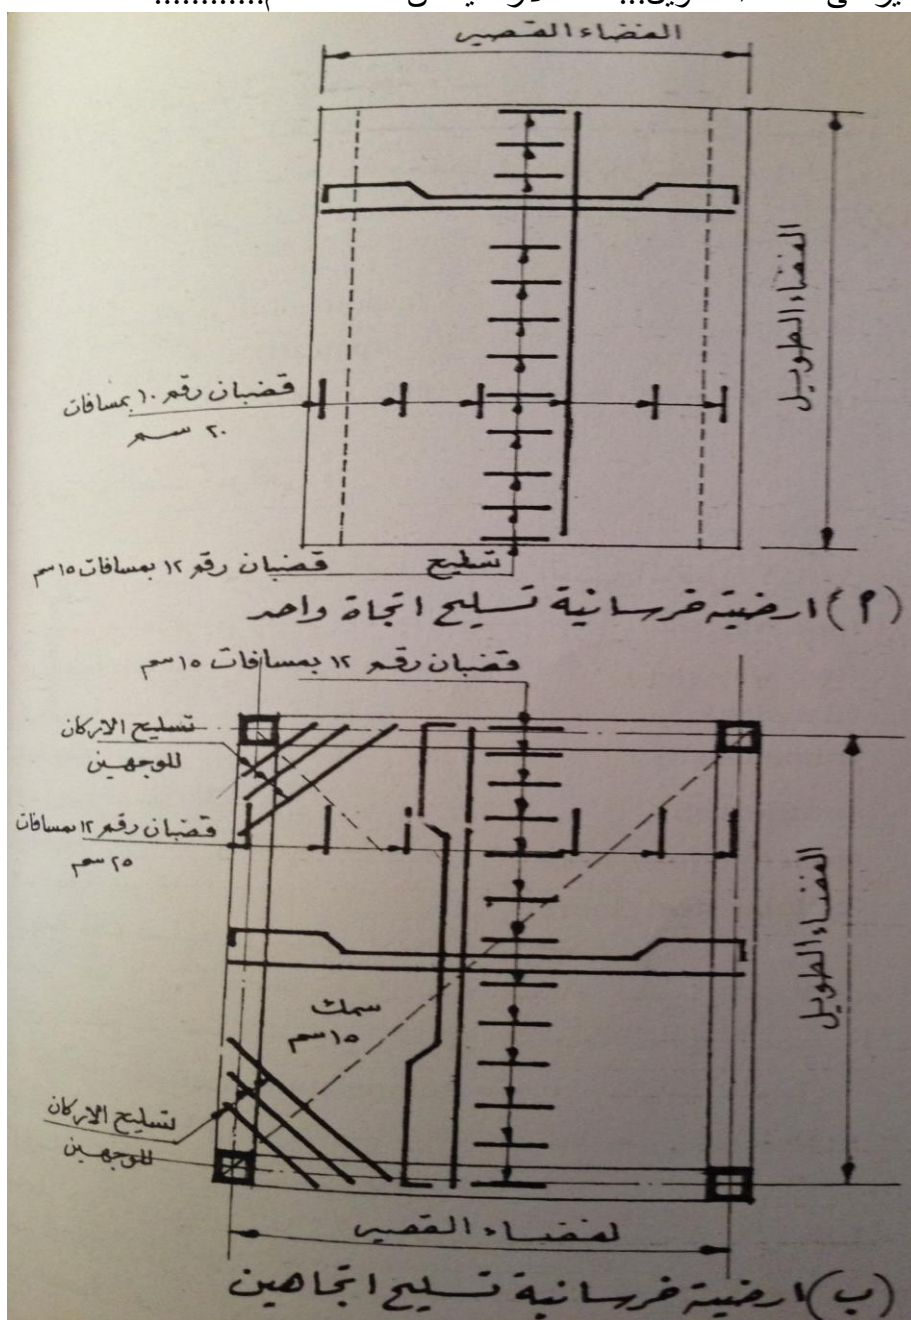 الفضاء القصير
الفضاء الطويل
قضبان رقم ١٠ بمسافات
٢٠ سم
تسليح
قضبان رقم ١٢ بمسافات ١٥ سم
(أ) ارضية خرسانية تسليح اتجاة واحد
قضبان رقم ١٢ بمسافات ١٥ سم
تسليح الاركان
للوجهين
قضبان رقم ١٢ بمسافات
٢٥ سم
الفضاء الطويل
سمك
١٥ سم
تسليح الاركان
للوجهين
لفضاء القصير
(ب) ارضية خرسانية تسليح اتجاهين